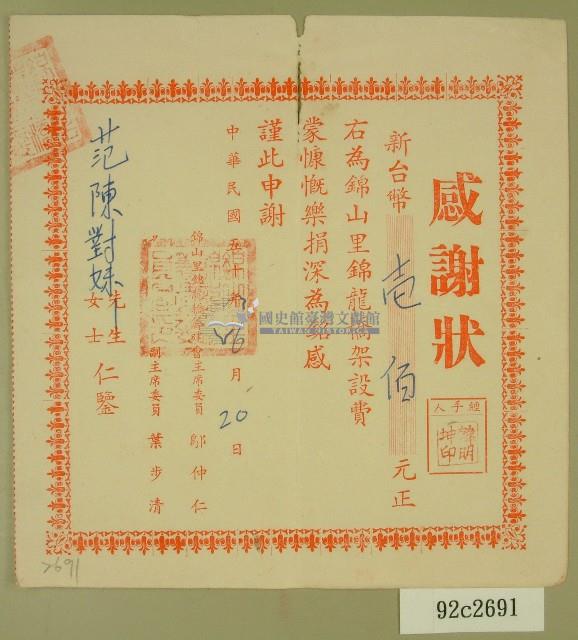 感謝狀
經手人
新台幣壹佰元正
右為錦山里錦龍橋架設費
蒙慷慨樂捐深為銘感
謹此申謝
中華民國五十 年 月 20 日
錦山里錦龍橋 建 會主席委員 鄔仲仁
副主席委員 葉步清
范陳對妹 先生 女士 仁鑒
國史館臺灣文獻館
TAIWAN HISTORICA
2691
92c2691